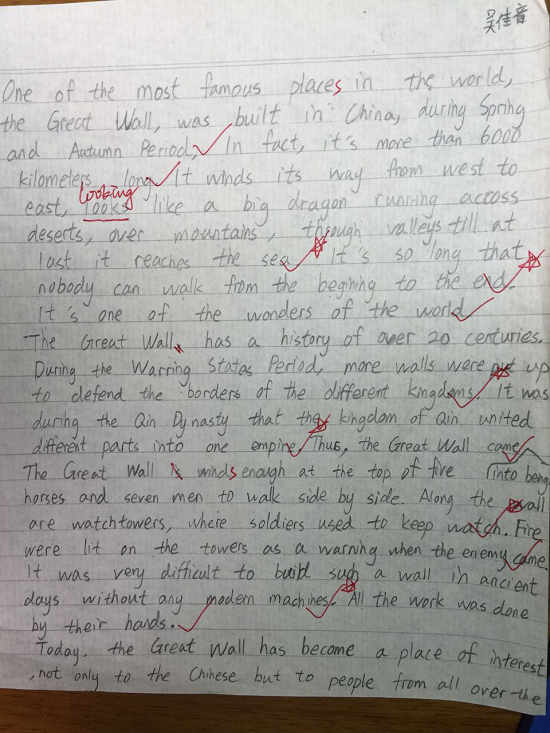 吴佳音
One of the most famous places in the world,
the Great Wall, was built in China, during Spring
and Autumn Period, In fact, it's more than 6000
kilometers long. It winds its way from west to
looking
east, looks like a big dragon running across
deserts, over mountains, through valleys till at
last it reaches the sea. It's so long that
nobody can walk from the begining to the end.
It's one of the wonders of the world
The Great Wall has a history of over 20 centuries.
During the Warring States Period, more walls were put up
to defend the borders of the different kingdoms. It was
during the Qin Dynasty that the kingdom of Qin united
different parts into one empire. Thus, the Great Wall came
The Great Wall is winds enough at the top of five into being
horses and seven men to walk side by side. Along the wall
are watchtowers, where soldiers used to keep watch. Fire
were lit on the towers as a warning when the enemy came.
It was very difficult to build such a wall in ancient
days without any modern machines. All the work was done
by their hands.
Today, the Great Wall has become a place of interest
, not only to the Chinese but to people from all over the